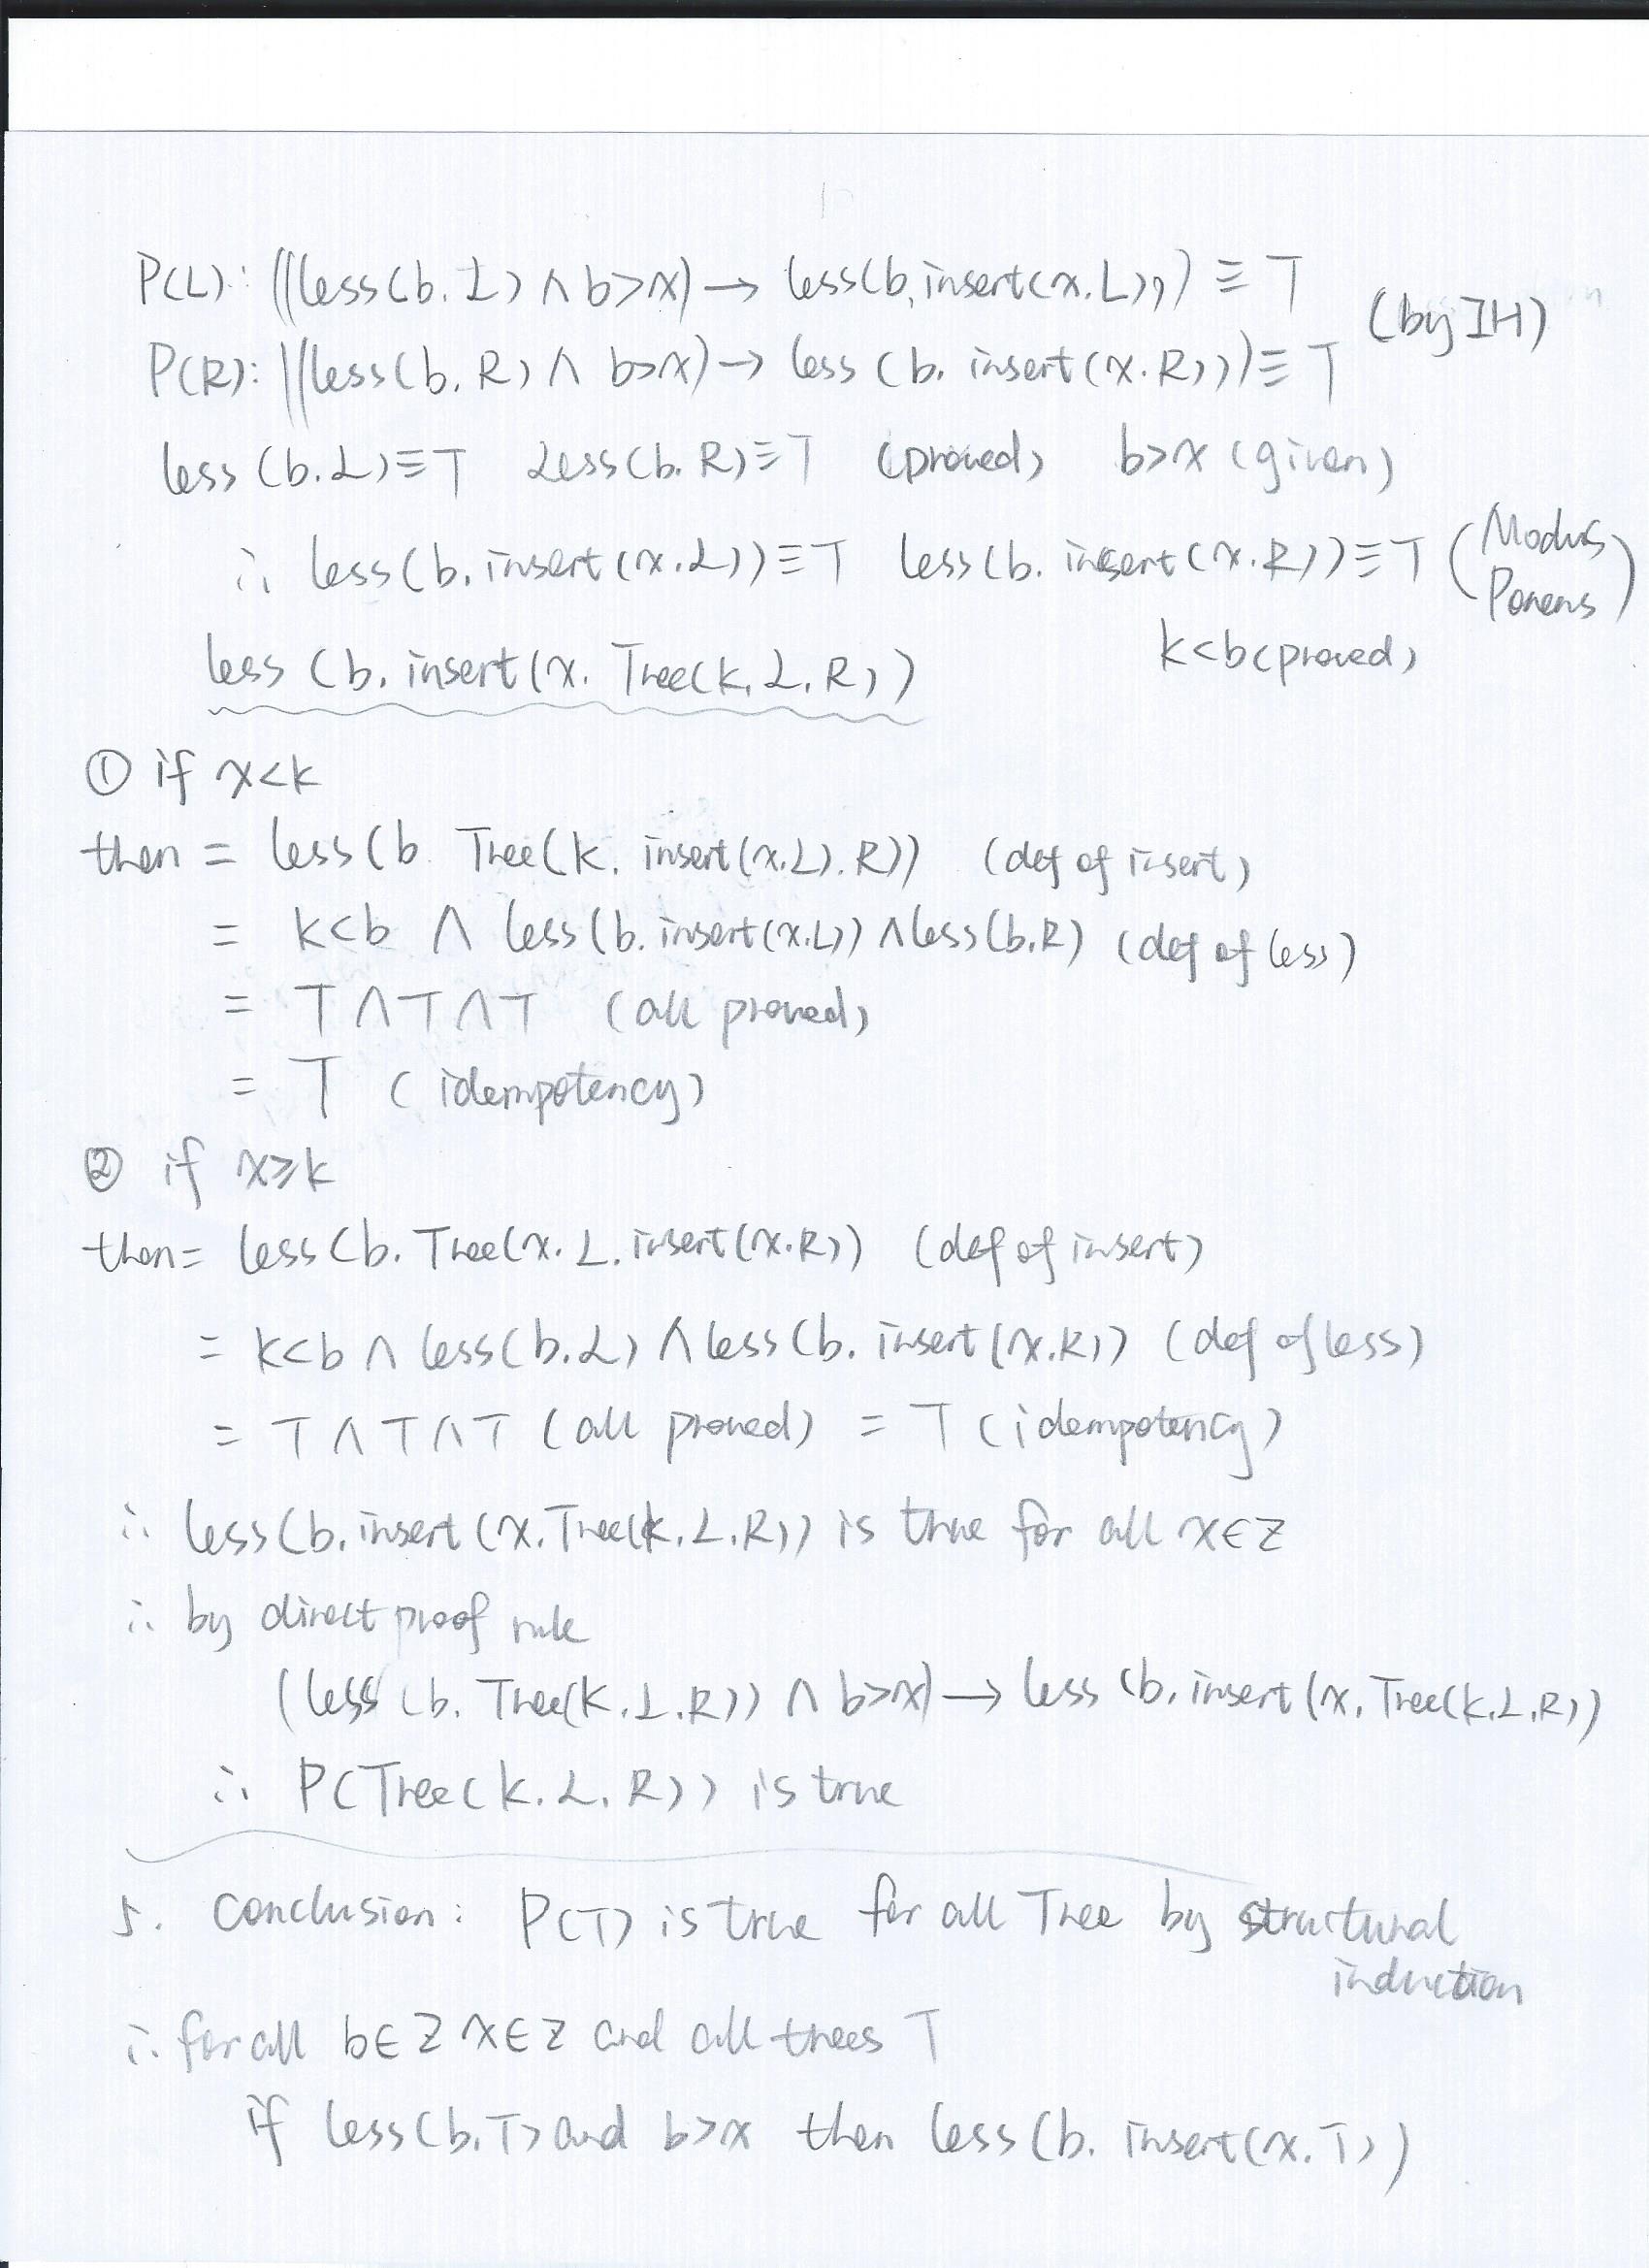 P(L): ((less(b, L) ∧ b>x) → less(b, insert(x, L))) ≡ T
(by IH)
P(R): ((less(b, R) ∧ b>x) → less(b, insert(x, R))) ≡ T
less(b, L) ≡ T Less(b, R) ≡ T (proved) b>x (given)
∴ less(b, insert(x, L)) ≡ T less(b, insert(x, R)) ≡ T (Modus Ponens)
less(b, insert(x, Tree(k, L, R)) k<b (proved)
① if x<k
then = less(b Tree(k, insert(x, L), R)) (def of insert)
= k<b ∧ less(b, insert(x, L)) ∧ less(b, R) (def of less)
= T ∧ T ∧ T (all proved)
= T (idempotency)
② if x≥k
then = less(b, Tree(x, L, insert(x, R)) (def of insert)
= k<b ∧ less(b, L) ∧ less(b, insert(x, R)) (def of less)
= T ∧ T ∧ T (all proved) = T (idempotency)
∴ less(b, insert(x, Tree(k, L, R)) is true for all x∈Z
∴ by direct proof rule
(less(b, Tree(k, L, R)) ∧ b>x) → less(b, insert(x, Tree(k, L, R))
∴ P(Tree(k, L, R)) is true
5. Conclusion: P(T) is true for all Tree by structural
induction
∴ for all b∈Z x∈Z and all trees T
if less(b, T) and b>x then less(b, insert(x, T))